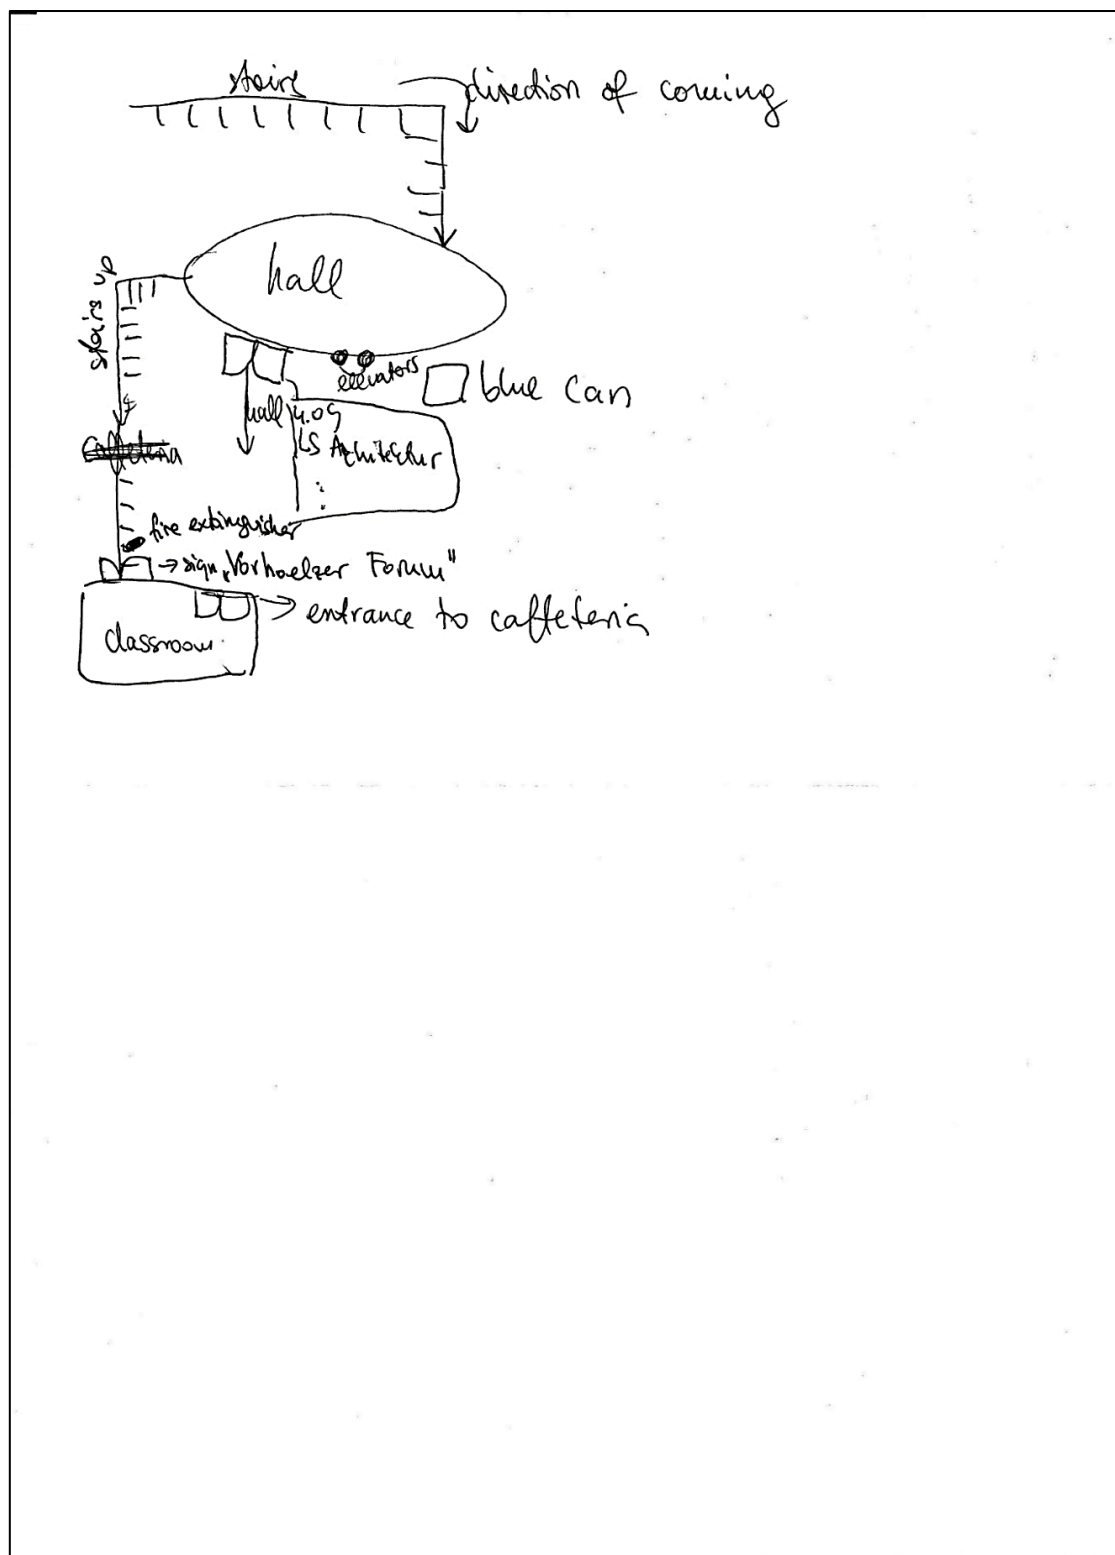 stairs
direction of coming
hall
stairs up
elevators
blue can
hall 4.OG
LS Architektur
caffeteria
fire extinguisher
sign „Vorhoelzer Forum"
entrance to caffeteria
classroom